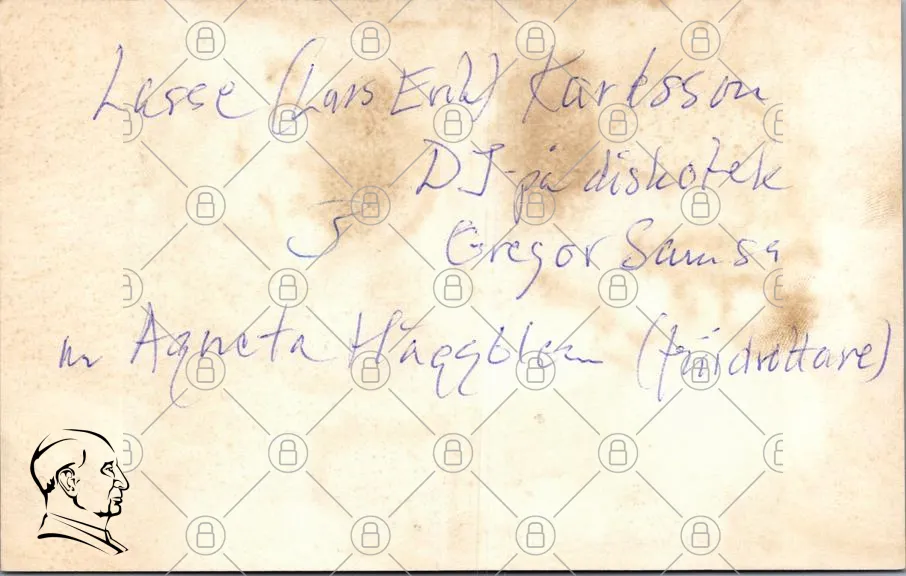 Lasse (Lars Erik) Karlsson
DJ på diskotek
5 Gregor Samsa
m Agneta Häggblom (friidrottare)